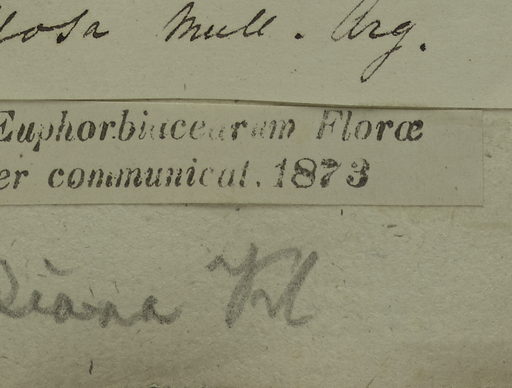 losa Muell. Arg.
Euphorbiacearum Floræ
er communicat. 1873
diana Kl